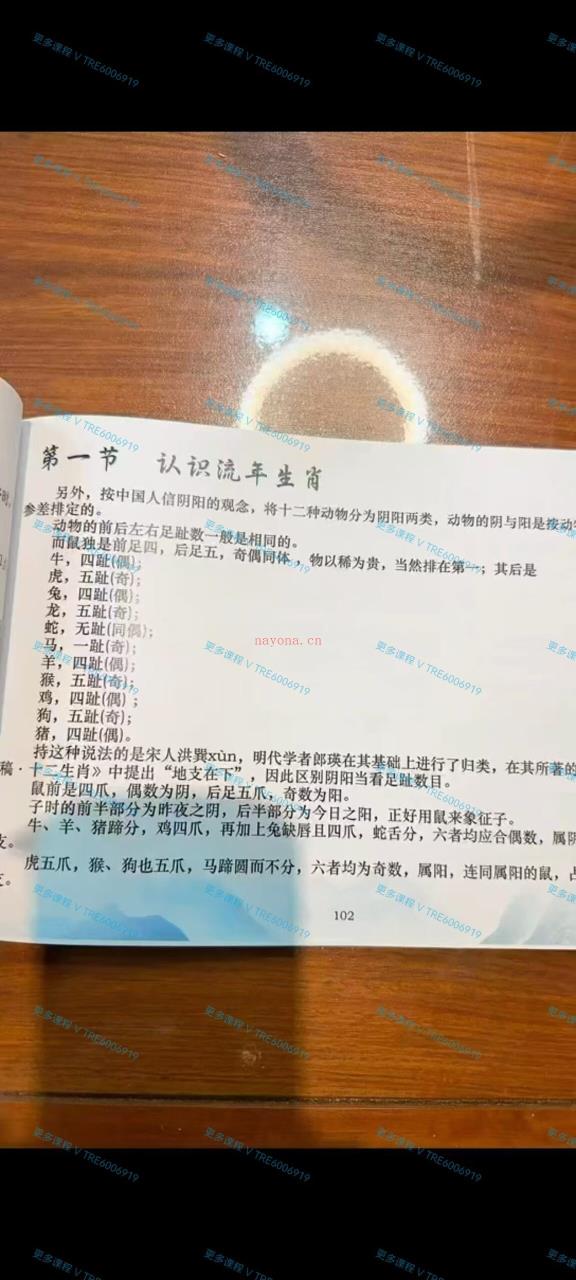 更多课程 V TRE6006919
第一节 认识流年生肖
另外，按中国人信阴阳的观念，将十二种动物分为阴阳两类，动物的阴与阳是按动
参差排定的。
动物的前后左右足趾数一般是相同的。
而鼠独是前足四，后足五，奇偶同体，物以稀为贵，当然排在第一；其后是
牛，四趾(偶)；
虎，五趾(奇)；
兔，四趾(偶)；
龙，五趾(奇)；
蛇，无趾(同偶)；
马，一趾(奇)；
nayona.cn
羊，四趾(偶)；
猴，五趾(奇)；
鸡，四趾(偶)；
狗，五趾(奇)；
猪，四趾(偶)。
持这种说法的是宋人洪巽xùn，明代学者郎瑛在其基础上进行了归类，在其所著的
稿·十二生肖》中提出“地支在下”，因此区别阴阳当看足趾数目。
鼠前是四爪，偶数为阴，后足五爪，奇数为阳。
子时的前半部分为昨夜之阴，后半部分为今日之阳，正好用鼠来象征子。
牛、羊、猪蹄分，鸡四爪，再加上兔缺唇且四爪，蛇舌分，六者均应合偶数，属阴
支。
虎五爪，猴、狗也五爪，马蹄圆而不分，六者均为奇数，属阳，连同属阳的鼠，占
支。
102